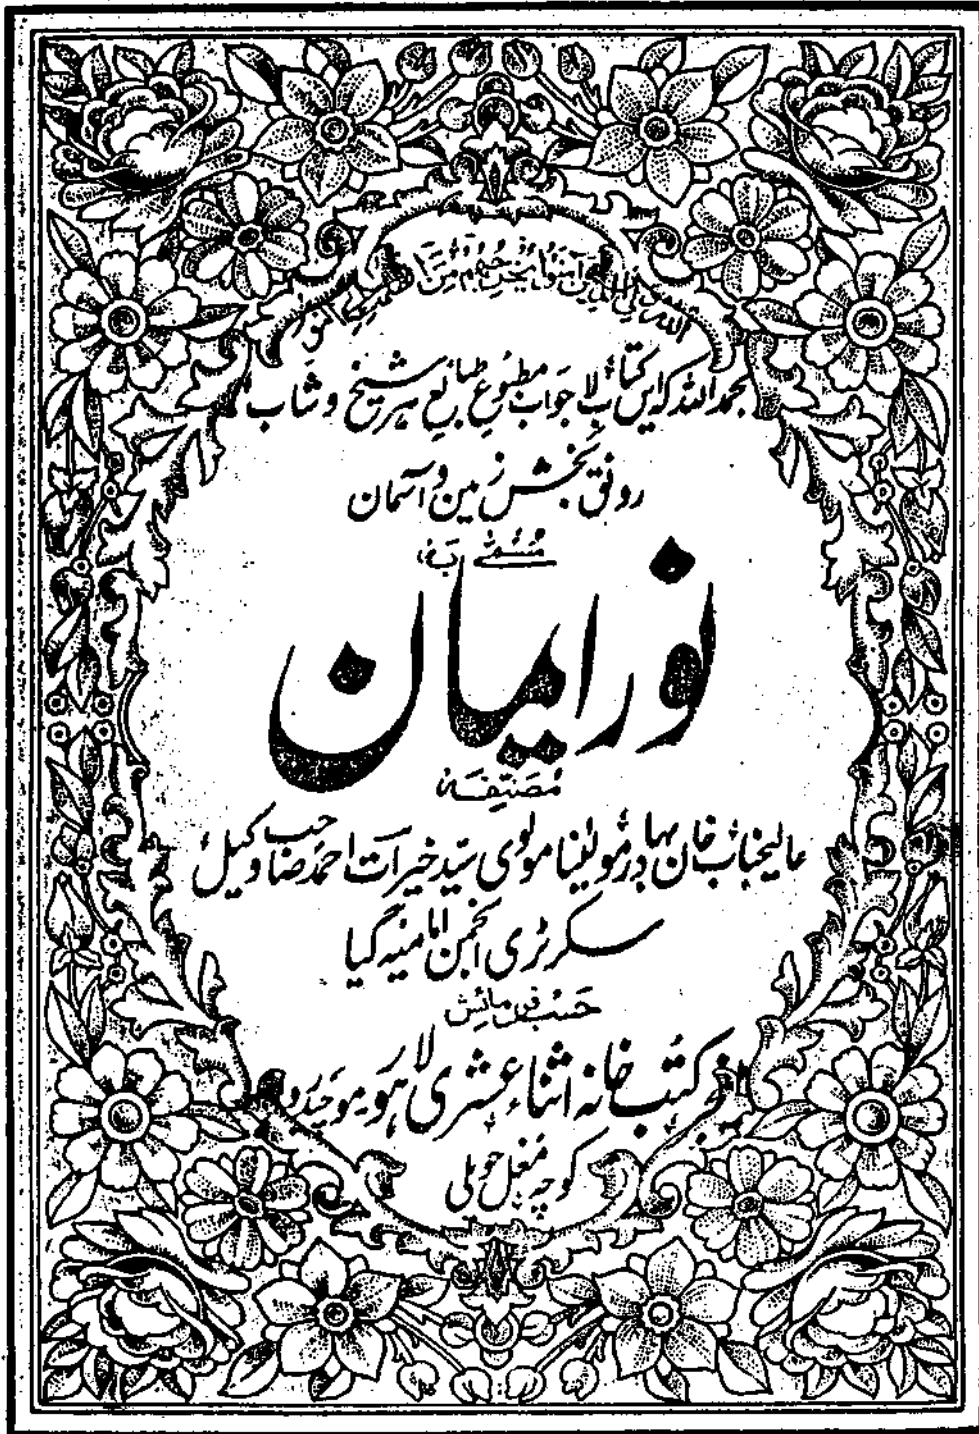 اللّٰہ ولی الذین آمنوا یخرجھم من الظلمٰت الی النور
بحمد اللہ کہ ایں کتاب لا جواب مطبوع طبائع ہر شیخ و شاب
رونق بخش زمین و آسمان
مُسَمّٰے بہ
نور ایمان
مصنفہ
عالیجناب خان بہادر مولینا مولوی سید خیرات احمد صاحب وکیل
سکرٹری انجمن امامیہ گیا
حسب فرمائش
کتب خانہ اثناء عشری لاہور موچیدروازہ
کوچہ مغل حویلی